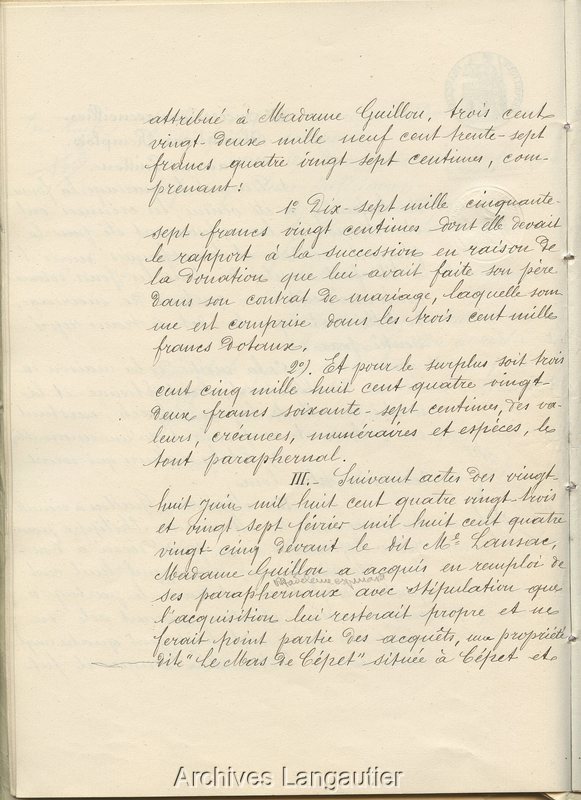 attribué à Madame Guillon, trois cent
vingt-deux mille neuf cent trente-sept
francs quatre vingt sept centimes, com-
prenant:
1º Dix-sept mille cinquante-
sept francs vingt centimes dont elle devait
le rapport à la succession en raison de
la donation que lui avait faite son père
dans son contrat de mariage, laquelle som-
me est comprise dans les trois cent mille
francs dotaux.
2º/. Et pour le surplus soit trois
cent cinq mille huit cent quatre vingt-
deux francs soixante-sept centimes, des va-
leurs, créances, numéraires et espèces, le
tout paraphernal.
III.- Suivant actes des vingt-
huit juin mil huit cent quatre vingt trois
et vingt sept février mil huit cent quatre
vingt cinq devant le dit Me Lansac,
Madame Guillon a acquis en remploi de
ses paraphernaux avec stipulation que
l'acquisition lui resterait propre et ne
ferait point partie des acquêts, une propriété
dite "Le Mas de Cépet" située à Cépet et
Archives Langautier